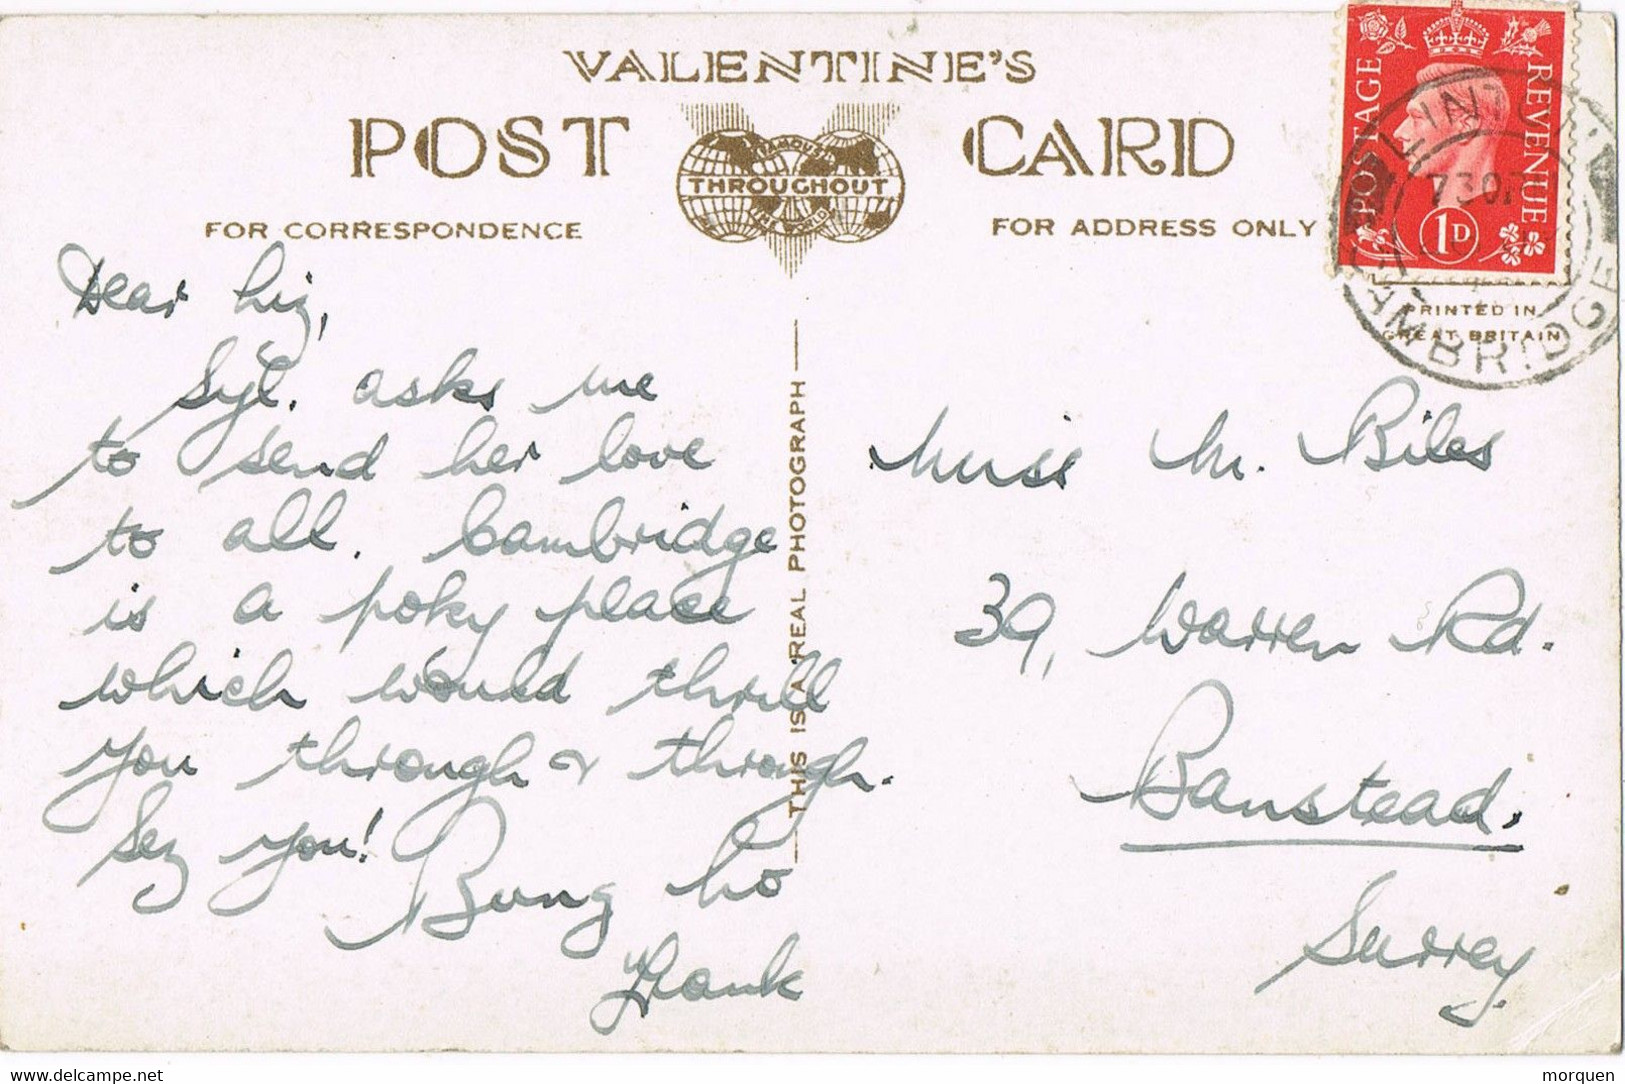 VALENTINE'S
POST CARD
FAMOUS
THROUGHOUT
THE WORLD
FOR CORRESPONDENCE
FOR ADDRESS ONLY
POSTAGE
REVENUE
1D
730P
CAMBRIDGE
PRINTED IN
GREAT BRITAIN
THIS IS A REAL PHOTOGRAPH
Dear Liz,
Syl. asks me
to send her love
to all. Cambridge
is a poky place
which would thrill
you through & through.
Sez you!
Bung ho
Hank
Miss M. Biles
39, Warren Rd.
Banstead.
Surrey.
www.delcampe.net
morquen